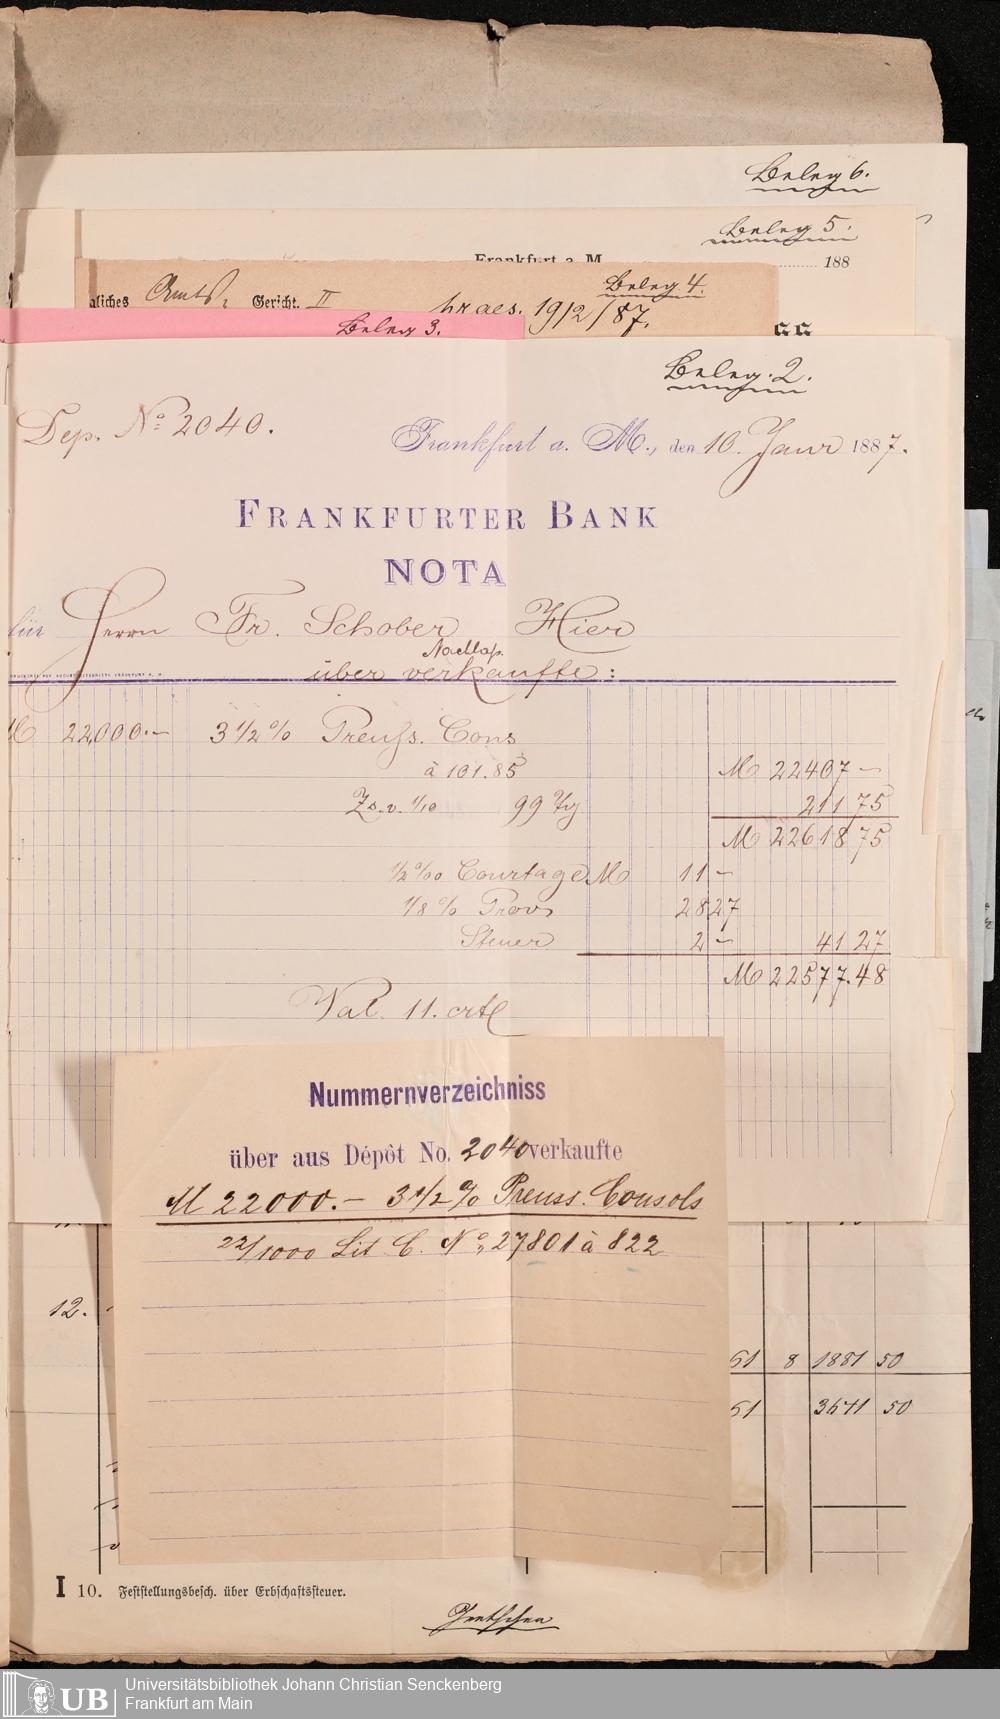 Beleg 6.
Beleg 5.
Frankfurt a. M.
188
Beleg 4.
Amts- Gericht. II
praes. 19/2/87.
Beleg 3.
Beleg. 2.
Dep. No 2040.
Frankfurt a. M., den 10. Janr 1887.
FRANKFURTER BANK
NOTA
für Herrn Fr. Schober Hier
Nachlass
über verkaufte:
M 22,000.— 3 1/2 % Preuss. Cons
à 101.85 M 22407 —
Zs. v. 1/10 99 Tg 211 75
M 22618 75
1/2 ‰ Courtage M 11 —
1/8 % Prov 28 27
Steuer 2 — 41 27
M 22577.48
Val. 11. crt
Nummernverzeichniss
über aus Dépôt No. 2040 verkaufte
M 22000.— 3 1/2 % Preuss. Consols
22/1000 Lit C. No 27801 à 822
12.
51 8 1881 50
51 3641 50
I 10. Feststellungsbesch. über Erbschaftssteuer.
UB
Universitätsbibliothek Johann Christian Senckenberg
Frankfurt am Main